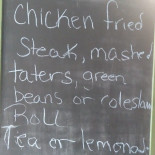 Chicken fried
Steak, mashed
taters, green
beans or coleslaw
Roll
Tea or lemonad